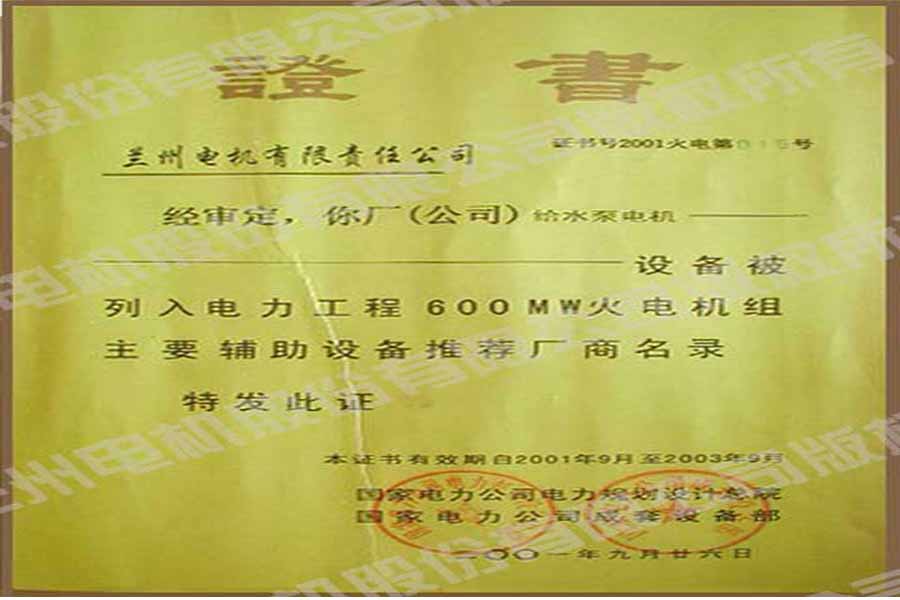 證書
兰州电机有限责任公司
证书号2001火电第015号
经审定，你厂(公司)给水泵电机
设备被
列入电力工程600MW火电机组
主要辅助设备推荐厂商名录
特发此证
本证书有效期自2001年9月至2003年9月
国家电力公司电力规划设计总院
国家电力公司成套设备部
二〇〇一年九月廿六日
股份有限公司版权所有
州电机股份有限公司版权所有